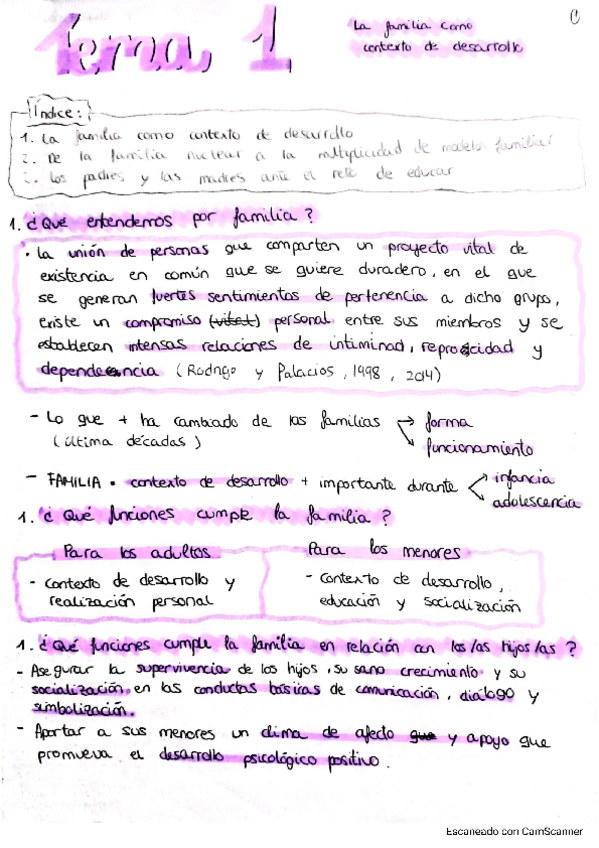 Tema 1
La familia como
contexto de desarrollo
Índice:
1. La familia como contexto de desarrollo
2. De la familia nuclear a la multiplicidad de modelos familiar
3. Los padres y las madres ante el reto de educar
1. ¿Qué entendemos por familia?
· La unión de personas que comparten un proyecto vital de
existencia en común que se quiere duradero, en el que
se generan fuertes sentimientos de pertenencia a dicho grupo,
existe un compromiso (vital) personal entre sus miembros y se
establecen intensas relaciones de intimidad, reprocidad y
dependencia (Rodrigo y Palacios, 1998, 2014)
- Lo que + ha cambiado de las familias → forma
(última décadas) ↘ funcionamiento
- FAMILIA • contexto de desarrollo + importante durante infancia
adolescencia
1. ¿Qué funciones cumple la familia?
Para los adultos Para los menores
- contexto de desarrollo y - contexto de desarrollo,
realización personal educación y socialización
1. ¿Qué funciones cumple la familia en relación con los/as hijos/as?
- Asegurar la supervivencia de los hijos, su sano crecimiento y su
socialización, en las conductas básicas de comunicación, diálogo y
simbolización.
- Aportar a sus menores un clima de afecto que y apoyo que
promueva el desarrollo psicológico positivo.
Escaneado con CamScanner